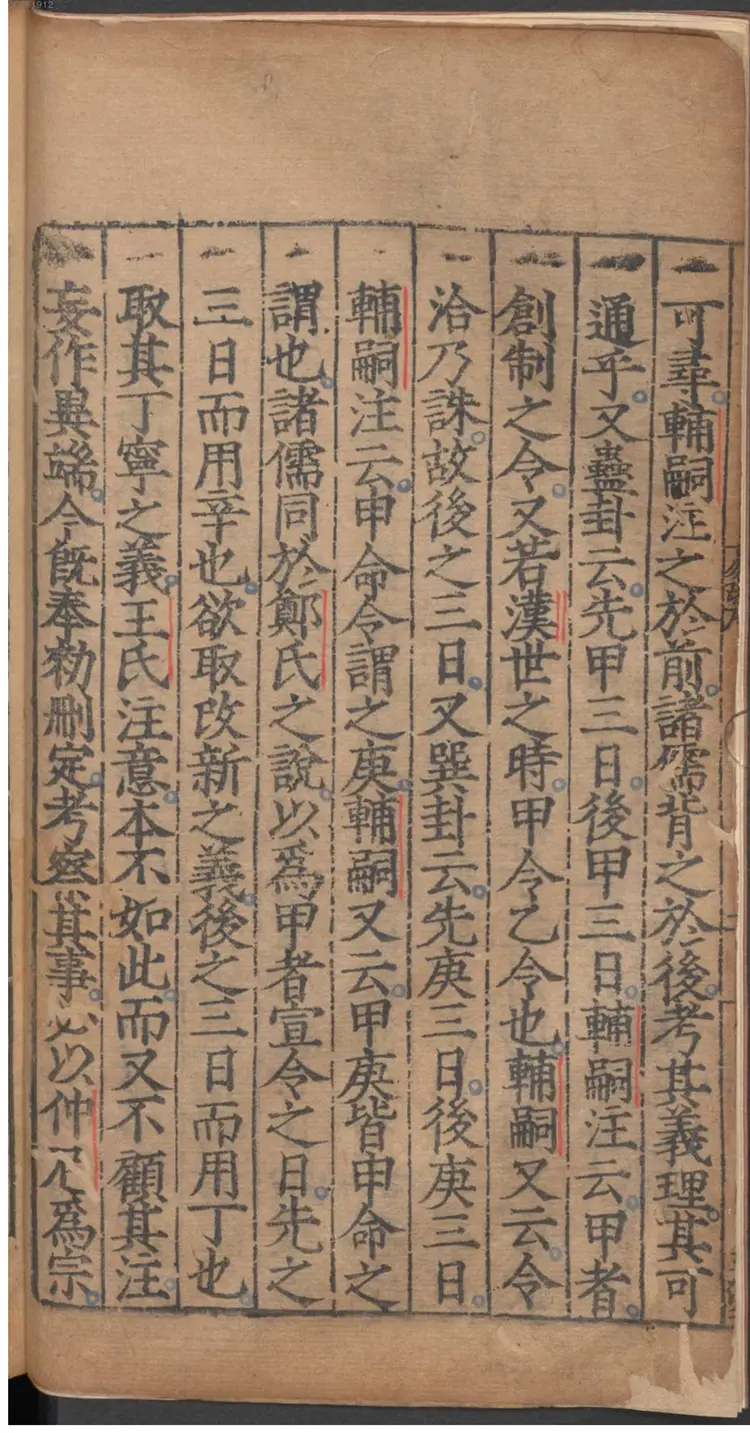 可尋輔嗣注之於前諸儒背之於後考其義理其可
通乎又蠱卦云先甲三日後甲三日輔嗣注云甲者
創制之令又若漢世之時甲令乙令也輔嗣又云令
洽乃誅故後之三日又巽卦云先庚三日後庚三日
輔嗣注云申命令謂之庚輔嗣又云甲庚皆申命之
謂也諸儒同於鄭氏之說以爲甲者宣令之日先之
三日而用辛也欲取改新之義後之三日而用丁也
取其丁寧之義王氏注意本不如此而又不顧其注
妄作異端今旣奉勑刪定考察其事必以仲尼爲宗